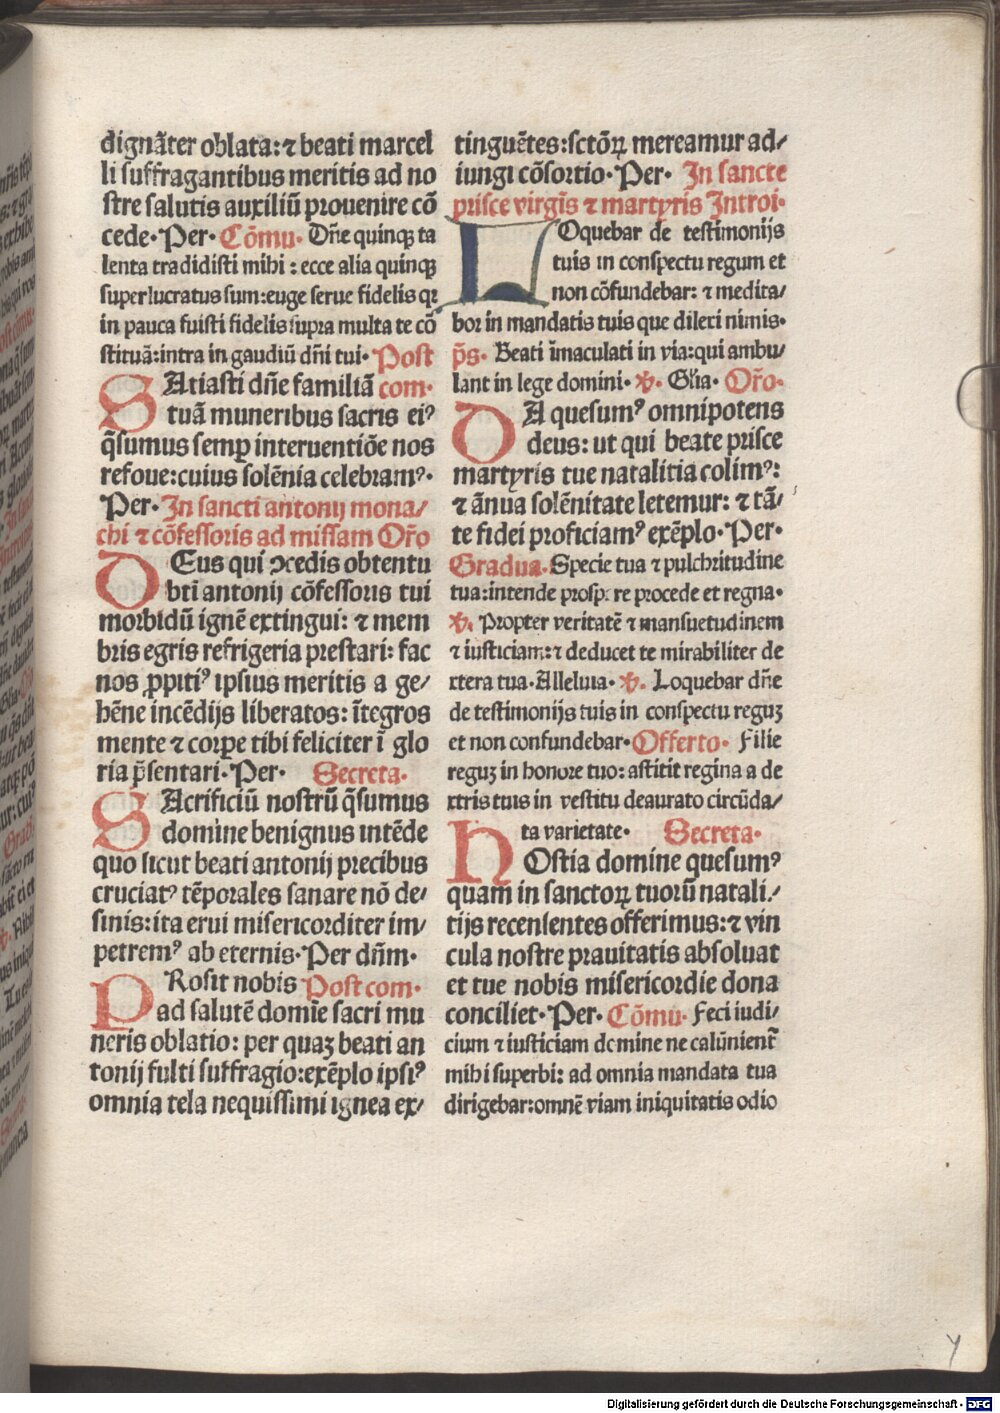 dignãter oblata: ⁊ beati marcel
li suffragantibus meritis ad no
stre salutis auxiliũ prouenire cõ
cede. Per. Cõmu. Dñe quinqꝫ ta
lenta tradidisti mihi : ecce alia quinqꝫ
superlucratus sum: euge serue fidelis qꝛ
in pauca fuisti fidelis supra multa te cõ
stituã: intra in gaudiũ dñi tui. Post
SAtiasti dñe familiã com.
tuã muneribus sacris eiꝰ
q̃sumus semꝑ interuentiõe nos
refoue: cuius solẽnia celebramꝰ.
Per. In sancti antonij mona/
chi ⁊ cõfessoris ad missam Oro
DEus qui ꝯcedis obtentu
bti antonij cõfessoris tui
morbidũ ignẽ extingui: ⁊ mem
bris egris refrigeria prestari: fac
nos ꝓpitiꝰ ipsius meritis a ge/
hẽne incẽdijs liberatos: ĩtegros
mente ⁊ corpe tibi feliciter ĩ glo
ria p̃sentari. Per. Secreta.
SAcrificiũ nostrũ q̃sumus
domine benignus intẽde
quo sicut beati antonij precibus
cruciatꝰ tẽporales sanare nõ de/
sinis: ita erui misericorditer im/
petremꝰ ab eternis. Per dñm.
PRosit nobis Post com.
ad salutẽ domĩe sacri mu
neris oblatio: per quaꝫ beati an
tonij fulti suffragio: exẽplo ipsiꝰ
omnia tela nequissimi ignea ex/
tinguẽtes: sctõꝝ mereamur ad/
iungi cõsortio. Per. In sancte
prisce virgĩs ⁊ martyris Introi.
LOquebar de testimonijs
tuis in conspectu regum et
non cõfundebar: ⁊ medita/
bor in mandatis tuis que dilexi nimis.
p̃s. Beati ĩmaculati in via: qui ambu/
lãnt in lege domini. ℣. Glia. Oro.
DA quesumꝰ omnipotens
deus: ut qui beate prisce
martyris tue natalitia colimꝰ:
⁊ ãnua solẽnitate letemur: ⁊ tã/
te fidei proficiamꝰ exẽplo. Per.
Gradua. Specie tua ⁊ pulchritudine
tua: intende prospere procede et regna.
℣. Propter veritatẽ ⁊ mansuetudinem
⁊ iusticiam: ⁊ deducet te mirabiliter de
xtera tua. Alleluia. ℣. Loquebar dñe
de testimonijs tuis in conspectu reguꝫ
et non confundebar. Offerto. Filie
reguꝫ in honore tuo: astitit regina a de
xtris tuis in vestitu deaurato circũda/
ta varietate. Secreta.
HOstia domine quesumꝰ
quam in sanctoꝝ tuorũ natali/
tijs recensentes offerimus: ⁊ vin
cula nostre prauitatis absoluat
et tue nobis misericordie dona
conciliet. Per. Cõmu. Feci iudi/
cium ⁊ iusticiam domine ne calũnient̃
mihi superbi: ad omnia mandata tua
dirigebar: omnẽ viam iniquitatis odio
Digitalisierung gefördert durch die Deutsche Forschungsgemeinschaft - DFG